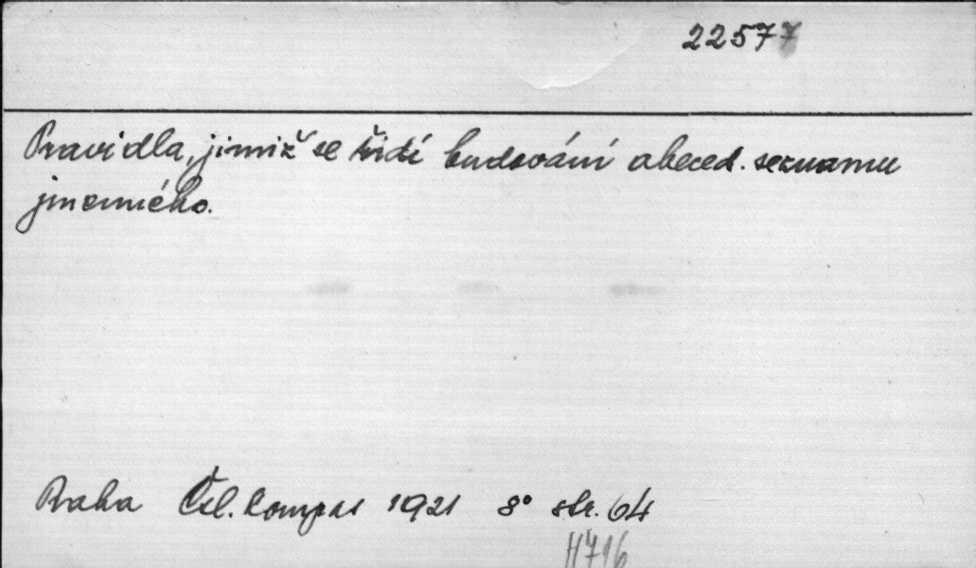 22577
Pravidla, jimiž se řídí budování abeced. seznamu
jmenného.
Praha Čsl. Kompas 1921 8° str. 64
H716